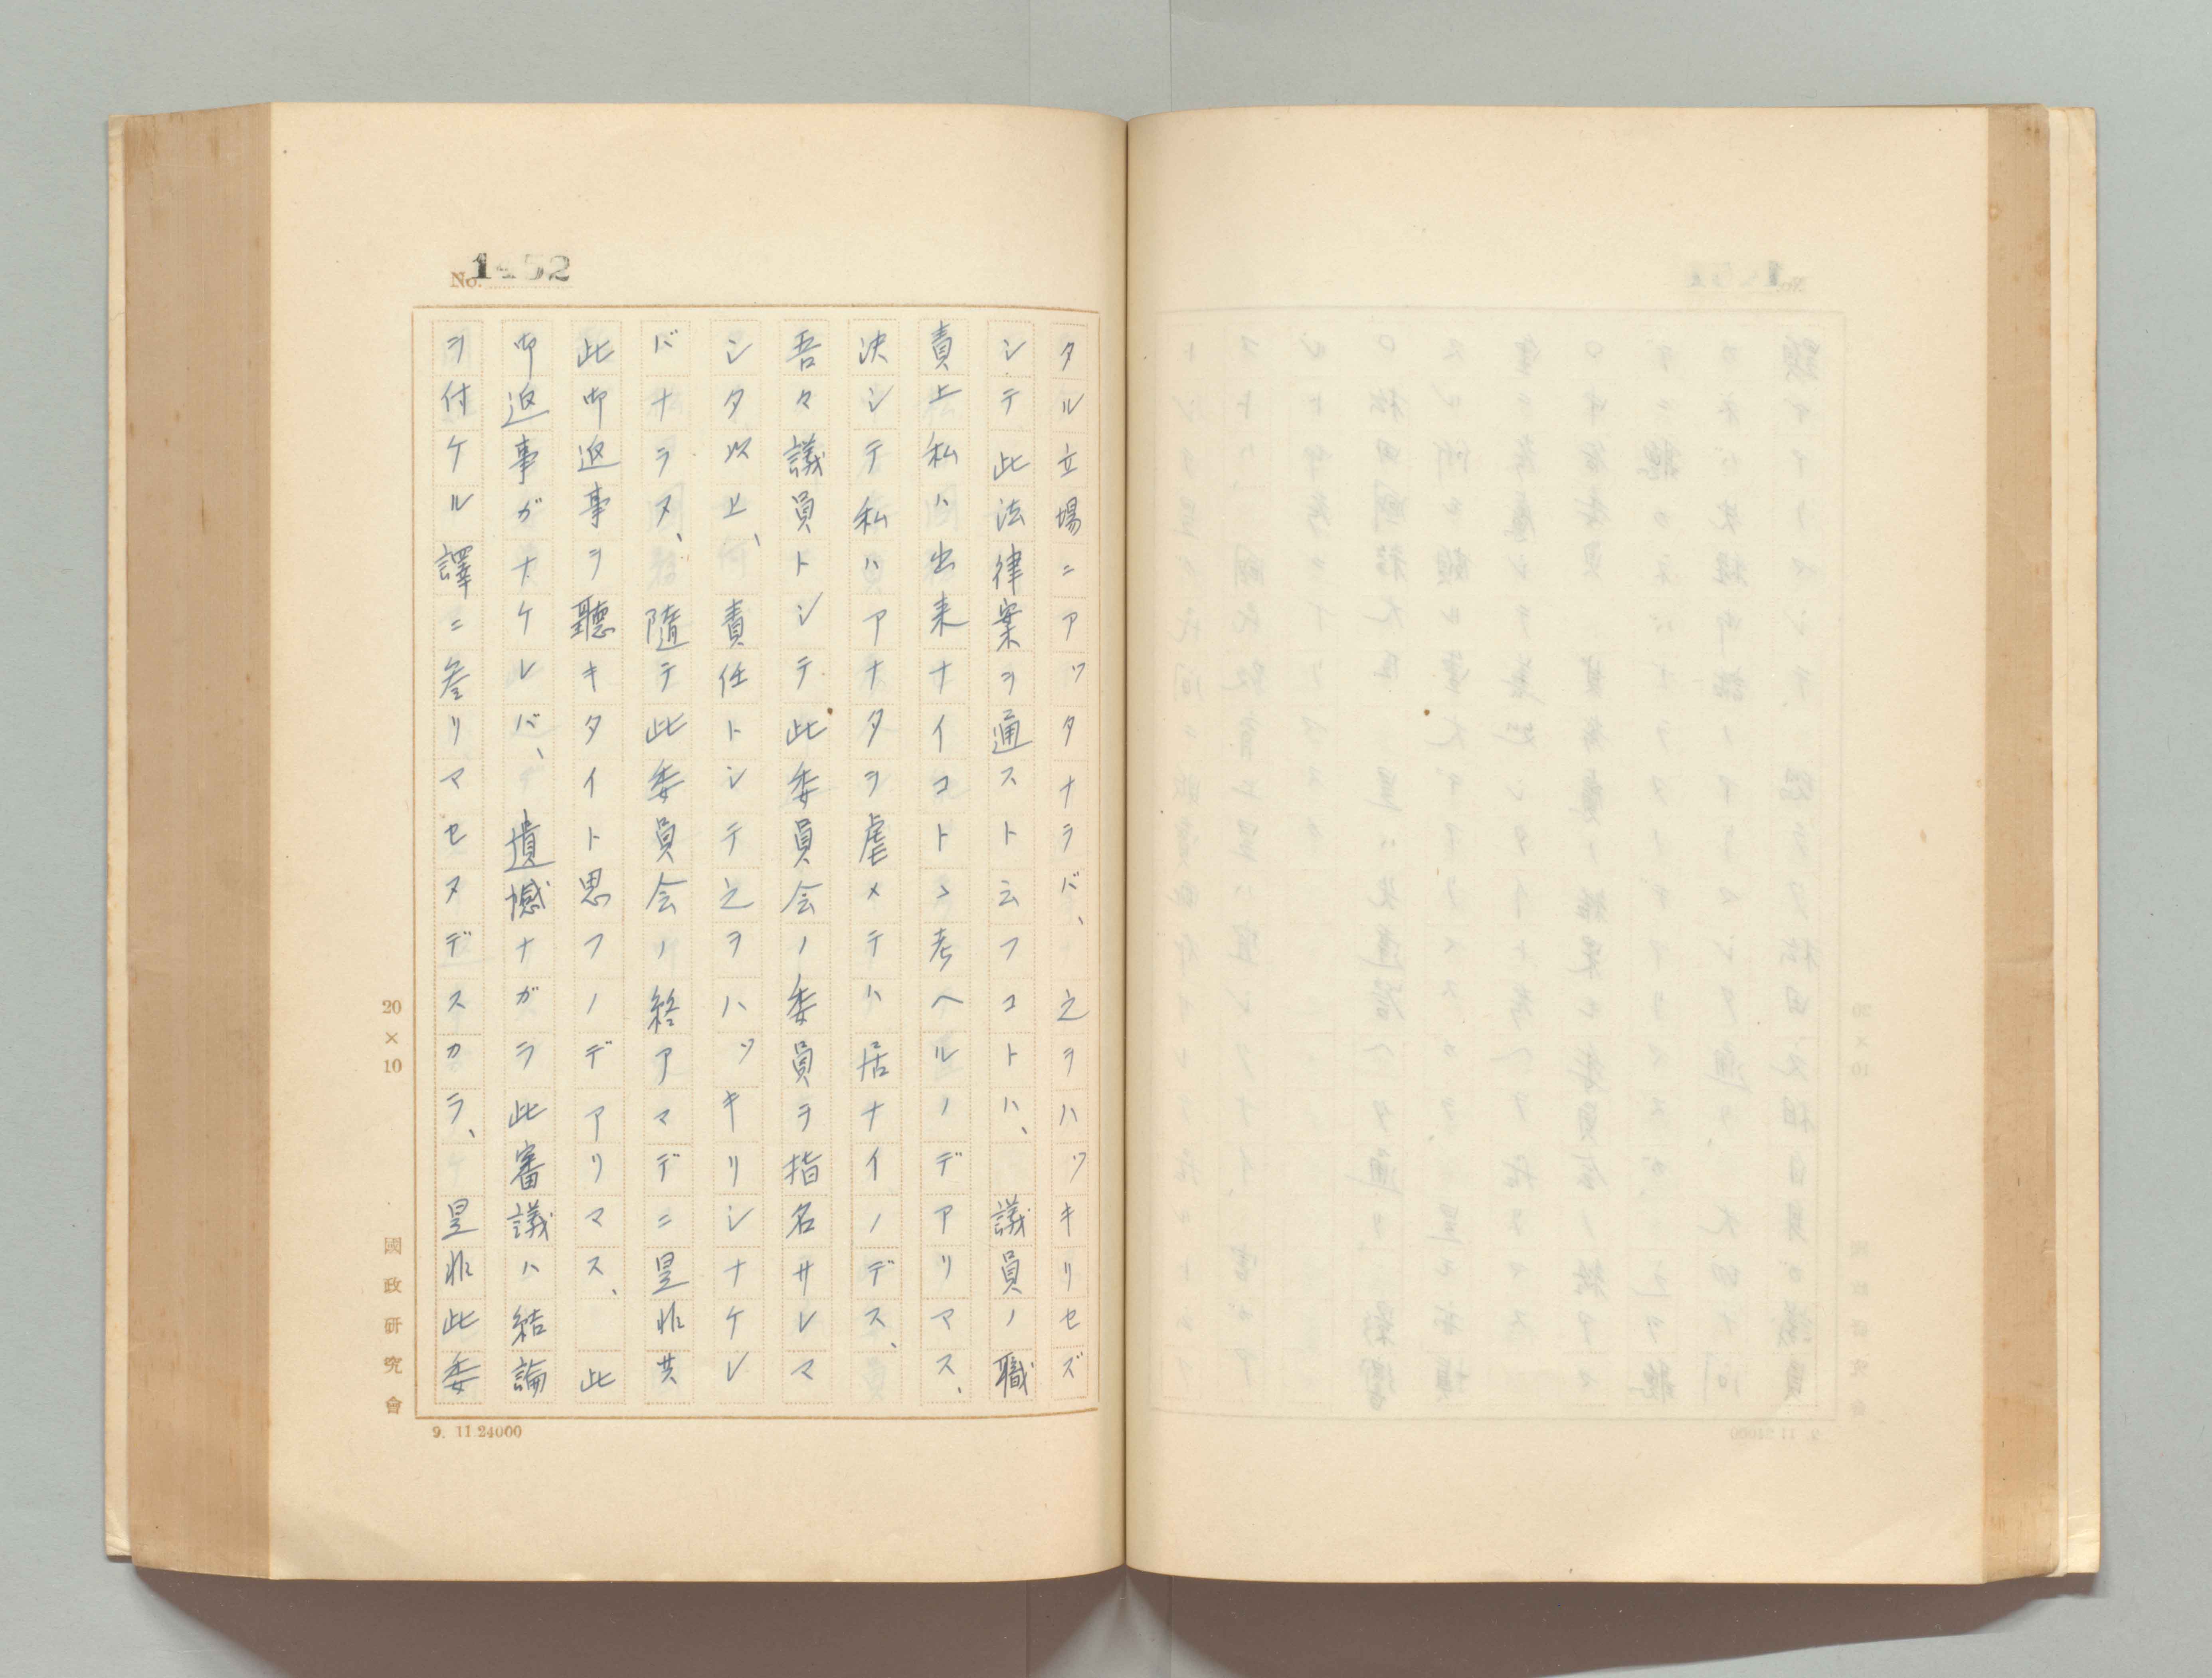 No. 1452
タル立場ニアツタナラバ、之ヲハツキリセズ
シテ此法律案ヲ通ストヱフコトハ、議員ノ職
責上私ハ出来ナイコトヽ考ヘルノデアリマス、
決シテ私ハアナタヲ虐メテハ居ナイノデス、
吾々議員トシテ此委員会ノ委員ヲ指名サレマ
シタ以上、責任トシテ之ヲハツキリシナケレ
バナラヌ、隨テ此委員会ノ終アマデニ是非共
此御返事ヲ聽キタイト思フノデアリマス、此
御返事ガナケレバ、遺憾ナガラ此審議ハ結論
ヲ付ケル譯ニ参リマセヌデスカラ、是非此委
20×10
國政研究會
9. 11.24000